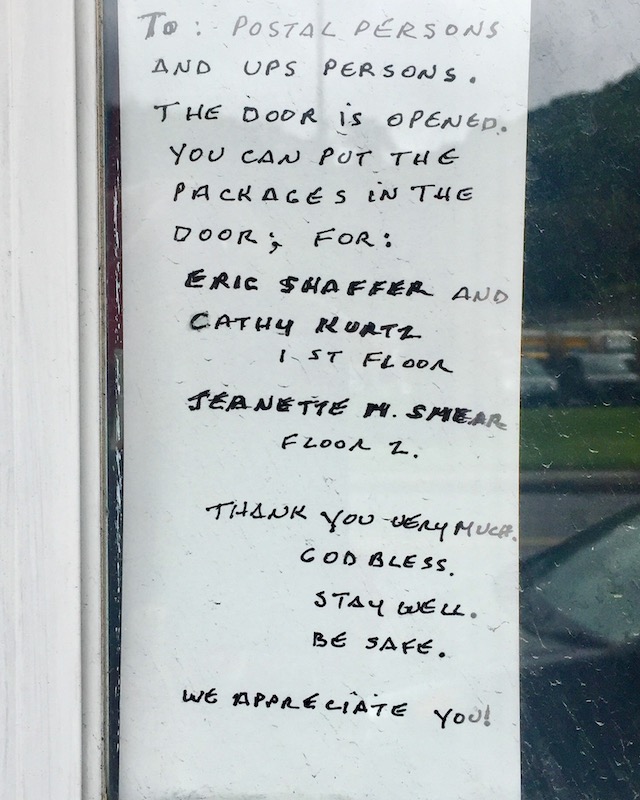 To: POSTAL PERSONS
AND UPS PERSONS.
THE DOOR iS OPENED.
YOU CAN PUT THE
PACKAGES iN THE
DOOR; FOR:
ERIC SHAFFER AND
CATHY KURTZ
1 ST FLOOR
JEANETTE M. SMEAR
FLOOR 2.
THANK YOU VERY MUCH.
GOD BLESS.
STAY WELL.
BE SAFE.
WE APPRECIATE YOU!